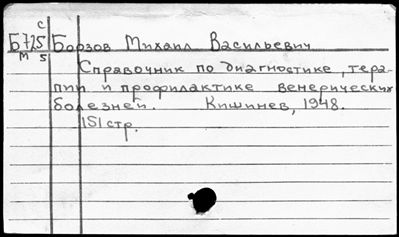 С
Б 725 Борзов Михаил Васильевич
М 5
Справочник по диагностике, тера-
пии и профилактике венерических
болезней. Кишинев, 1948.
151 стр.